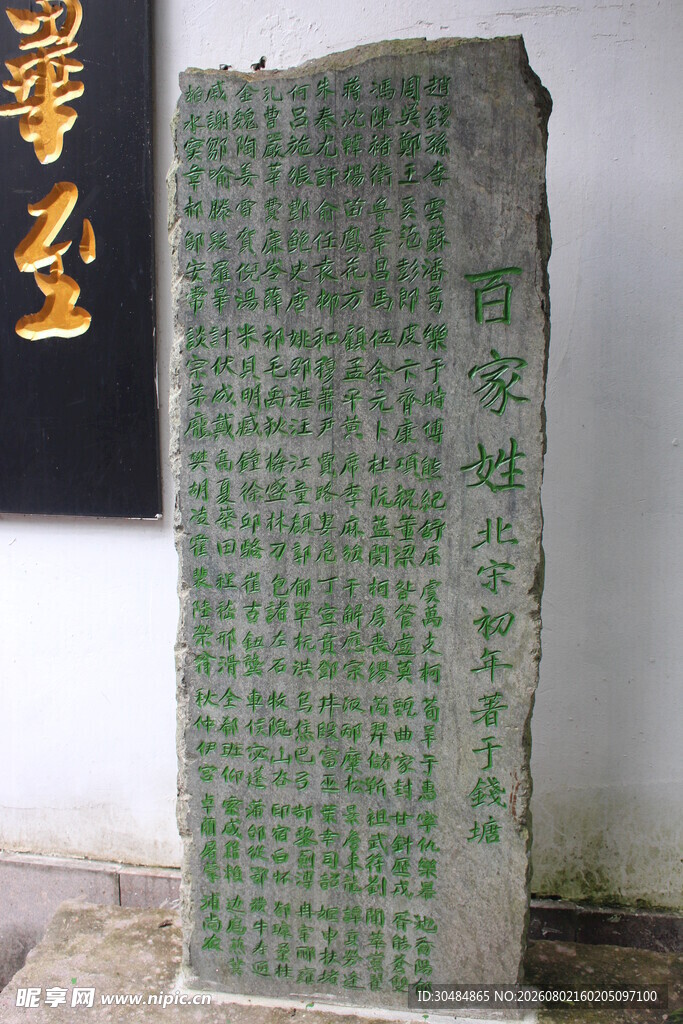 畢至
百家姓 北宋初年著于錢塘
趙錢孫李雲蘇潘葛樂于時傅熊紀舒屈虞萬支柯荀羊于惠寧仇欒暴
周吳鄭王奚范彭郎皮卞齊康項祝董梁昝管盧莫甄曲家封甘鈄厲戎胥能蒼雙
馮陳褚衛魯韋昌馬伍余元卜杜阮藍閔柯房裘繆芮羿儲靳祖武符劉聞莘黨翟
蔣沈韓楊苗鳳花方顧孟平黃席季麻強干解應宗汲邴糜松景詹束龍譚貢勞逄
朱秦尤許俞任袁柳和穆蕭尹賈路婁危丁宣賁鄧井段富巫葉幸司韶姬申扶堵
何呂施張酆鮑史唐姚邵湛汪江童顏郭郁單杭洪烏焦巴弓郜黎薊薄冉宰酈雍
孔曹嚴華費廉岑薛祁毛禹狄梅盛林刁包諸左石牧隗山谷印宿白怀郤璩桑桂
金魏陶姜雷賀倪湯米貝明臧鐘徐邱駱崔吉鈕龔車侯宓蓬蒲邰從鄂濮牛寿通
戚謝鄒喻滕殷羅畢計伏成戴高夏蔡田程嵇邢滑全郗班仰索咸籍賴边扈燕冀
柏水竇章郝鄔安常談宋茅龐樊胡凌霍裴陸榮翁秋仲伊宮卓藺屠蒙浦尚农
昵享网 www.nipic.cn
ID:30484865 NO:20260802160205097100